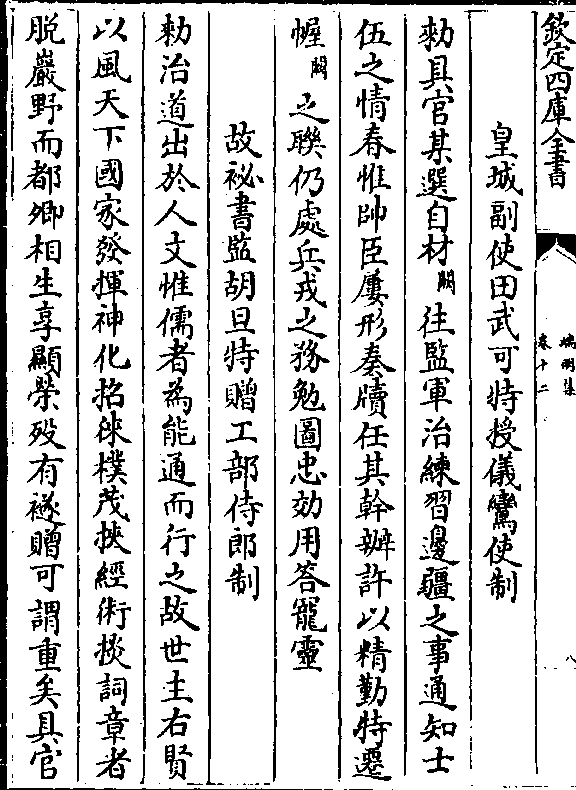 欽定四庫全書
端明集
卷十二
八
皇城副使田武可特授儀鸞使制
勅具官某選自材闕往監軍治練習邊疆之事通知士
伍之情眷惟帥臣屢形奏牘任其幹辦許以精勤特遷
幄闕之聯仍處兵戎之務勉圖忠効用答寵靈
故祕書監胡旦特贈工部侍郎制
勅治道出於人文惟儒者為能通而行之故世主右賢
以風天下國家發揮神化招徠樸茂挾經術掞詞章者
脱巖野而都卿相生享顯榮殁有襚贈可謂重矣具官